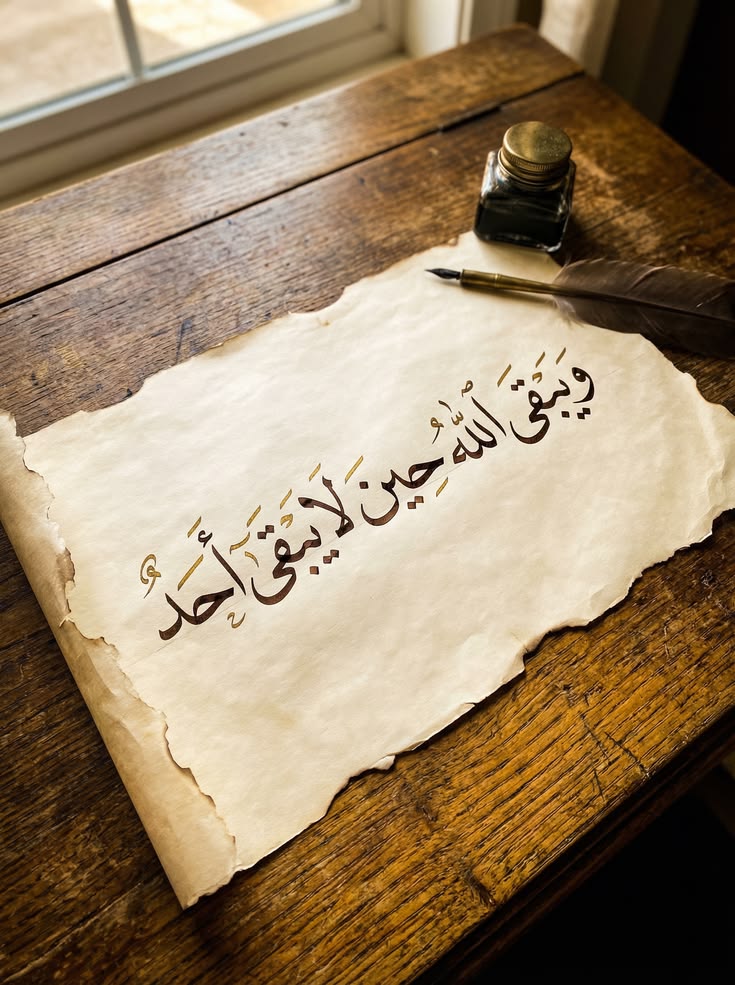 وَيَبْقَى اللَّهُ حِينَ لَا يَبْقَى أَحَدٌ